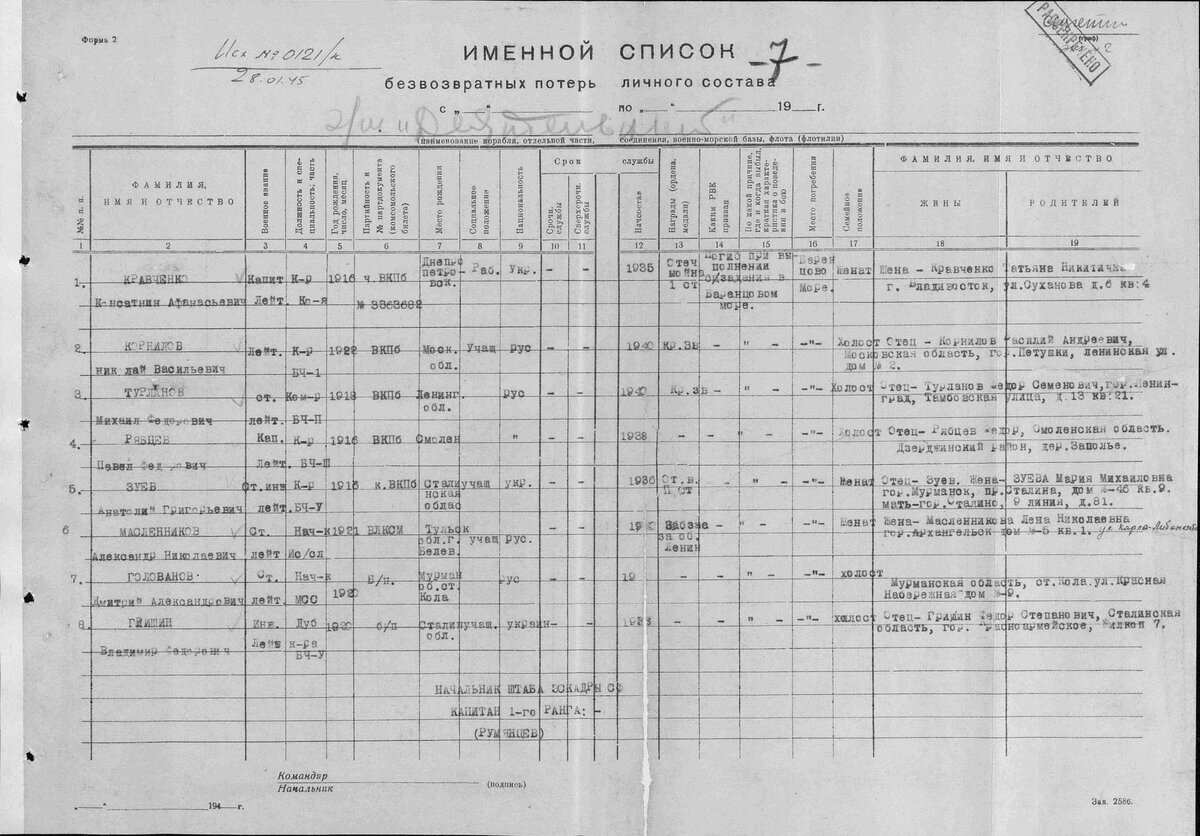 Форма 2
Исх № 0121/к
28.01.45
ИМЕННОЙ СПИСОК
-7-
РАССЕКРЕЧЕНО
безвозвратных потерь личного состава
с „ “ по „ “ 19 г.
э/м „Деятельный"
(наименование корабля, отдельной части, соединения, военно-морской базы, флота (флотилии)
№№ п. п.
ФАМИЛИЯ, ИМЯ И ОТЧЕСТВО
Военное звание
Должность и специальность, часть
Год рождения, число, месяц
Партийность и № партдокумента (комсомольского билета)
Место рождения
Социальное положение
Национальность
Срок службы
Срочн. службы
Сверхсрочн. службы
Начсостав
Награды (ордена, медали)
Каким РВК призван
По какой причине, где и когда выбыл, краткая характеристика о поведении в бою
Место погребения
Семейное положение
ФАМИЛИЯ, ИМЯ И ОТЧЕСТВО
ЖЕНЫ
РОДИТЕЛЕЙ
1 2 3 4 5 6 7 8 9 10 11 12 13 14 15 16 17 18 19
1. КРАВЧЕНКО Капит К-р 1916 ч.ВКПб Днепропетровск. Раб. Укр. - - 1935 Отеч война 1 ст Погиб при выполнении б/задания в Баранцовом море. Баренцово Море. Женат Жена - Кравченко Татьяна Никитична
Консатнин Афанасьевич Лейт. Ко-я № 3363682 г. Владивосток, ул.Суханова д.6 кв.4
2. КОРНИЛОВ Лейт. К-р 1922 ВКПб Моск. Учащ рус - - 1940 Кр.Зв - " - -"- Холост Отец - Корнилов Василий Андреевич,
Николай Васильевич БЧ-1 обл. Московская область, гор.Петушки, ленинская ул.
дом № 2.
3. ТУРЛАНОВ ст. Ком-р 1918 ВКПб Ленинг. рус - - 1940 Кр.зв - " - -"- Холост Отец- Турланов Федор Семенович, гор.Ленин-
Михаил Федорович лейт. БЧ-П обл. град, Тамбовская улица, д.13 кв.21.
4. РЯБЦЕВ Кап. К-р 1916 ВКПб Смолен " - - 1938 - - " - -"- Холост Отец- Рябцев Федор, Смоленская область.
Павел Федорович Лейт. БЧ-Ш Дзерджинский район, дер.Заполье.
5. ЗУЕВ Ст.инж К-р 1916 к.ВКПб Стали учащ укр. - - 1936 От.в. - " - -"- Женат Отец- Зуев. Жена- ЗУЕВА Мария Михаиловна
Анатолий Григорьевич лейт. БЧ-У нская облас П ст гор.Мурманск, пр.Сталина, дом №-46 кв.9.
мать-гор.Сталино, 9 линия, д.81.
6 МАСЛЕННИКОВ Ст. Нач-к 1921 ВЛКСМ Тульск учащ рус. - - 1940 Забова за об. Ленин - " - -"- Женат Жена- Масленникова Лена Николаевна
Александр Николаевич лейт Ис/сл обл.г. Белев. гор.Архангельск дом №-5 кв.1. ул Карла-Либкнехта
7. ГОЛОВАНОВ Ст. Нач-к 1920 Б/п. Мурман об.ст. Кола рус - - 19 - - " - -"- холост
Дмитрий Александрович лейт. МСС Мурманская область, ст.Кола.ул.Красная
Набережная дом №-9.
8. ГРИШИН Инж. Дуб 1920 б/п Сталин учащ. украин- - - 1938 - - " - -"- холост Отец- Гришин Федор Степанович, Сталинская
Владимир Федорович Лейт к-ра БЧ-У обл. область, гор. Красноармейское, Жилкоп 7.
НАЧАЛЬНИК ШТАБА ЭСКАДРЫ СФ
КАПИТАН 1-го РАНГА: -
(РУМЯНЦЕВ)
Командир
Начальник
(подпись)
„ “ 194 г.
Зак. 2586.